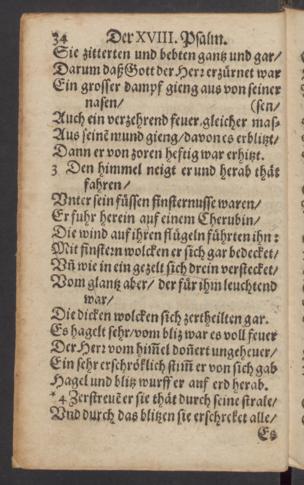 34 Der XVIII. Psalm.
Sie zitterten und bebten gantz und gar/
Darum daß Gott der Herr erzürnet war
Ein grosser dampf gieng aus von seiner
nasen/ (sen/
Auch ein verzehrend feuer gleicher mas-
Aus seinē mund gieng/davon es erblitzt/
Dann er von zoren heftig war erhitzt.
3 Den himmel neigt er und herab thät
fahren/
Vnter sein füssen finsternusse waren/
Er fuhr herein auf einem Cherubin/
Die wind auf ihren flügeln führten ihn:
Mit finstern wolcken er sich gar bedecket/
Vñ wie in ein gezelt sich drein verstecket/
Vom glantz aber/ der für ihm leuchtend
war/
Die dicken wolcken sich zertheilten gar.
Es hagelt sehr/vom bliz war es voll feuer
Der Herr vom him̄el don̄ert ungeheuer/
Ein sehr erschröklich stim̄ er von sich gab
Hagel und blitz wurff er auf erd herab.
*4 Zerstreuē er sie thät durch seine strale/
Vnd durch das blitzen sie erschreket alle/
Es